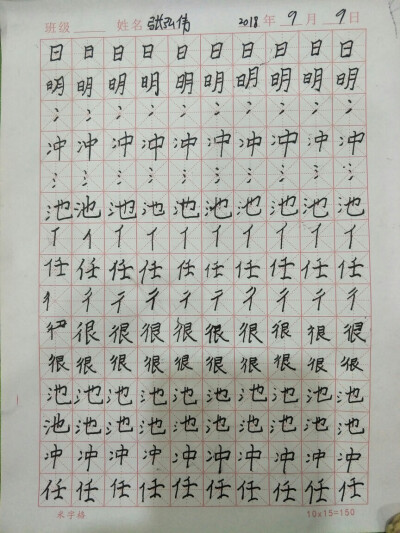 班级 姓名 张弘伟 2018年9月9日
日日日日日日日日日日
明明明明明明明明明明
冫冫冫冫冫冫冫冫冫冫
冲冲冲冲冲冲冲冲冲冲
氵氵氵氵氵氵氵氵氵氵
池池池池池池池池池池
亻亻亻亻亻亻亻亻亻亻
任任任任任任任任任任
彳彳彳彳彳彳彳彳彳彳
很很很很很很很很很
很很很很很很很很很很
池池池池池池池池池池
池池池池池池池池池池
冲冲冲冲冲冲冲冲冲冲
任任任任任任任任任任
米字格 10×15=150